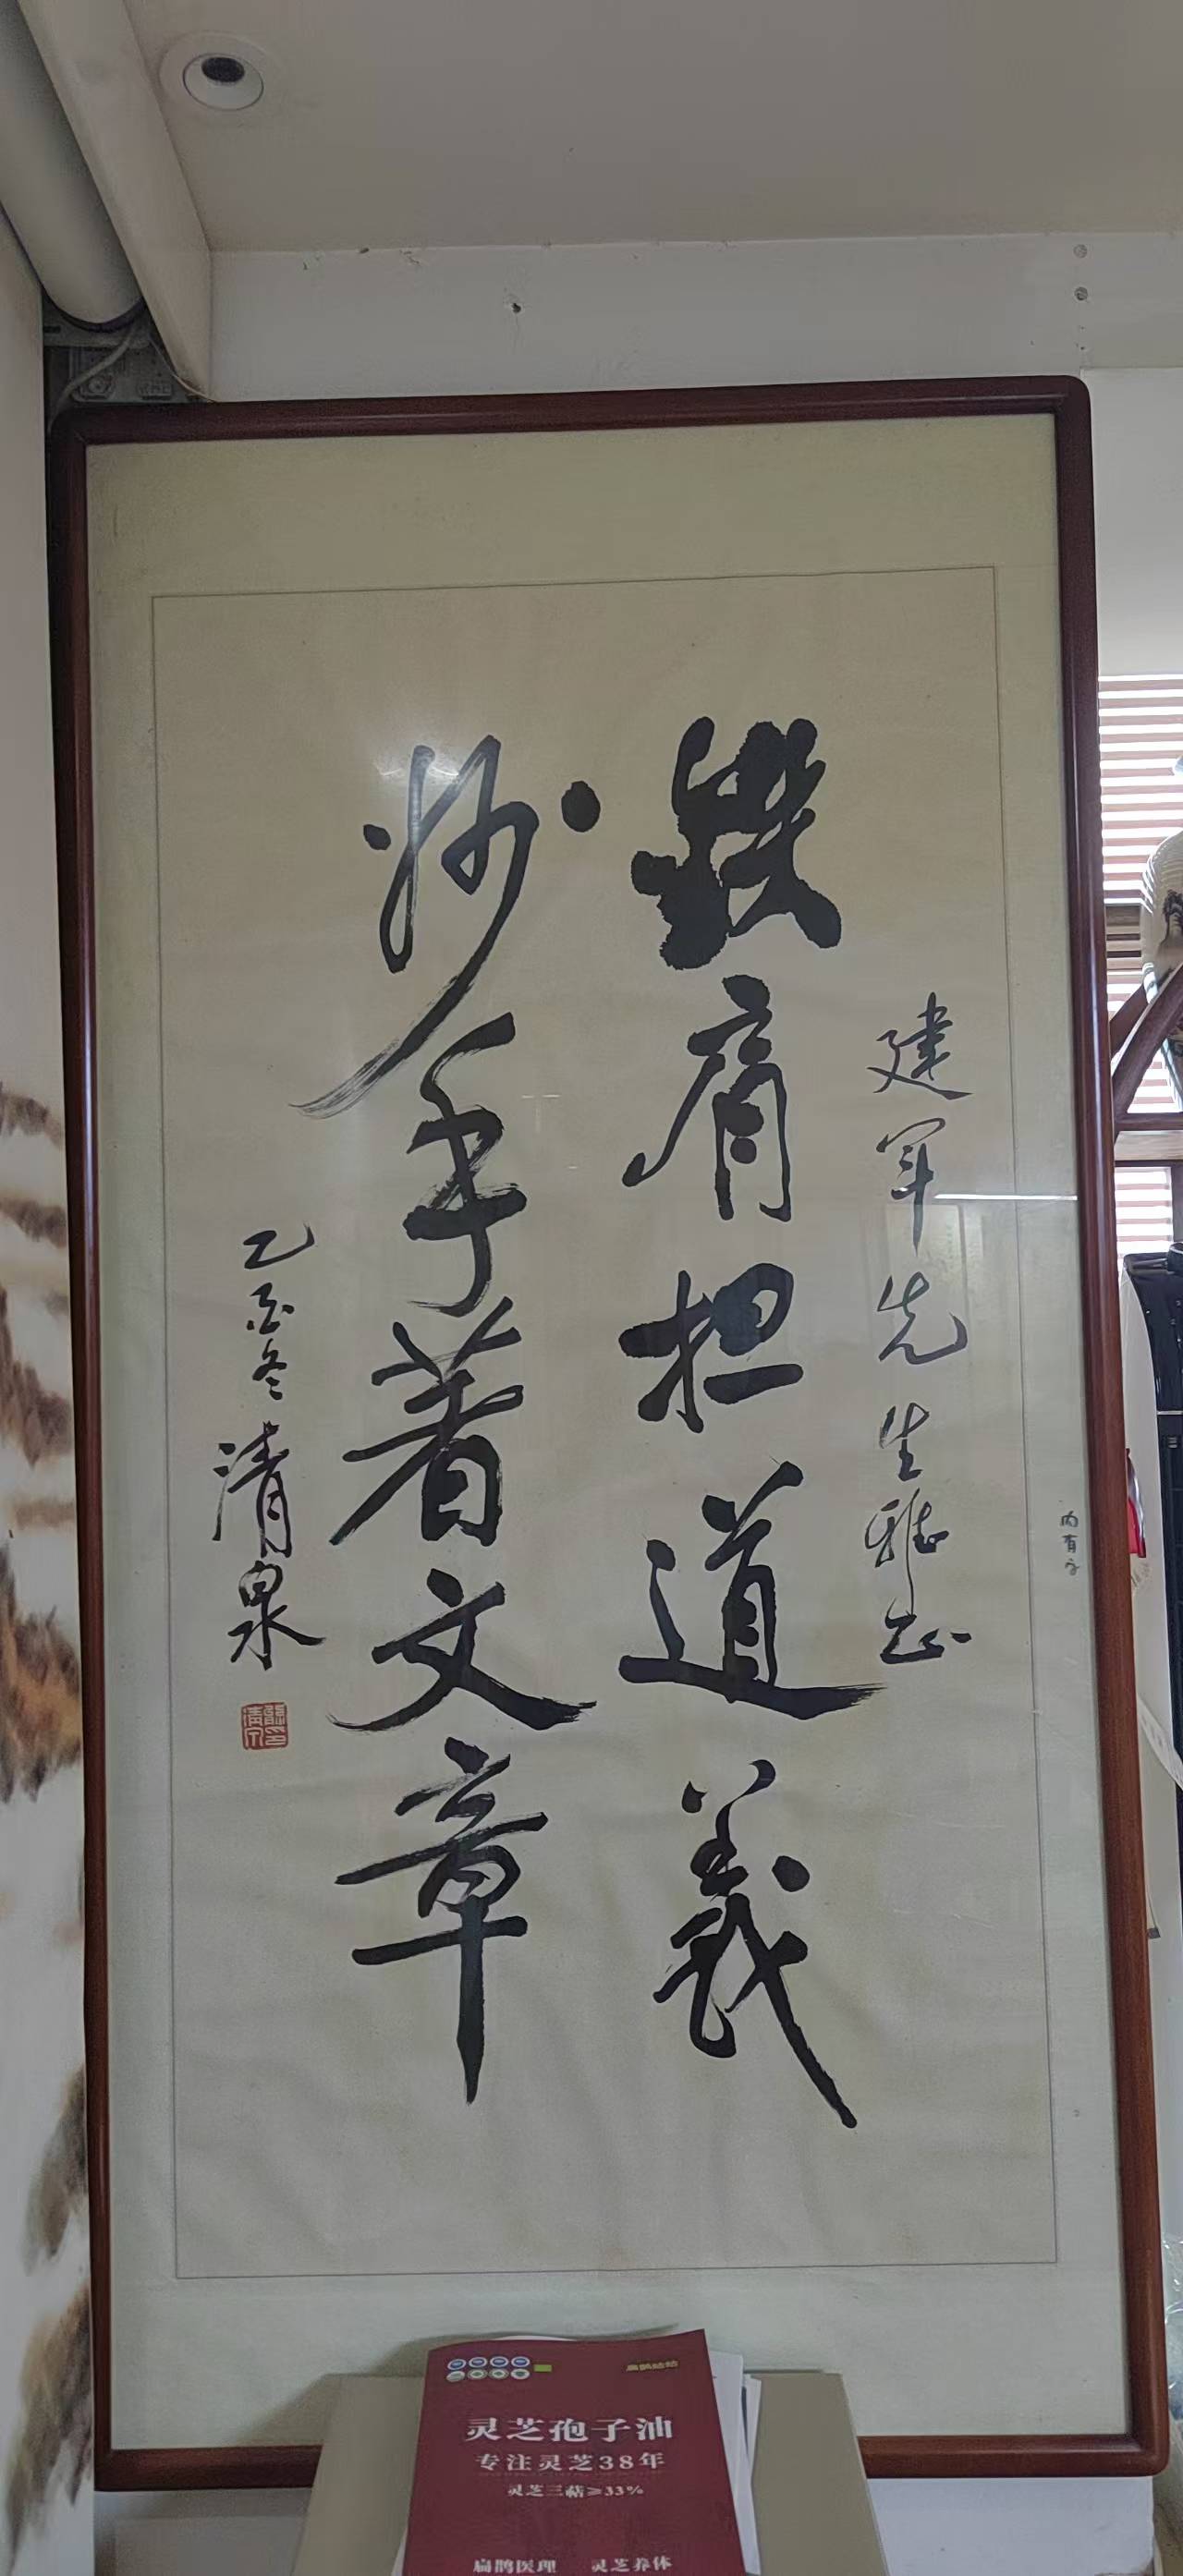 建军先生雅正
鉄肩担道義
妙手著文章
乙 冬 清泉
内有
灵芝孢子油
专注灵芝38年
灵芝三萜≥33%
扁鹊医理 灵芝养体